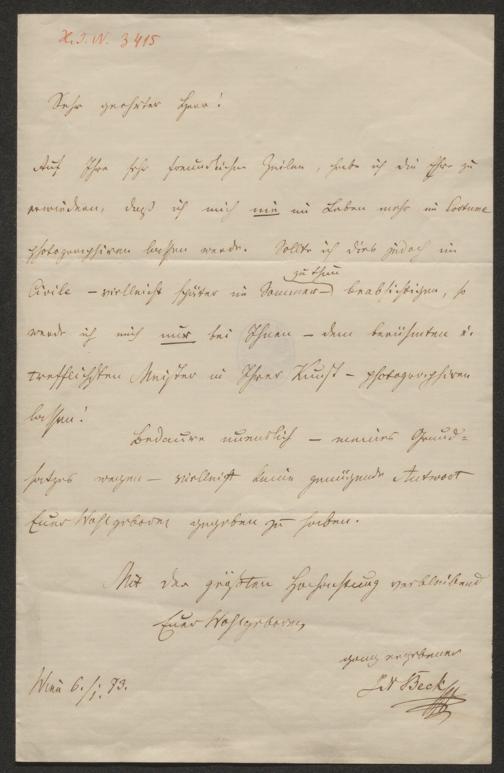 H.I.N. 3415
Sehr geehrter Herr!
Auf Ihre sehr freundlichen Zeilen, habe ich die Ehre zu
erwiedern, daß ich mich nie im Leben mehr im Costume
photographiren lassen werde. Sollte ich dies jedoch im
zu thun
Civile – vielleicht später im Sommer – beabsichtigen, so
werde ich mich nur bei Ihnen – dem berühmten u.
trefflichsten Meister in Ihrer Kunst – photographiren
lassen!
Bedaure unendlich – meines Grund=
satzes wegen – vielleicht keine genügende Antwort
Euer Wohlgeboren gegeben zu haben.
Mit der größten Hochachtung verbleibend
Euer Wohlgeboren
ganz ergebener
Wien 6./1. 73.
JN Beck